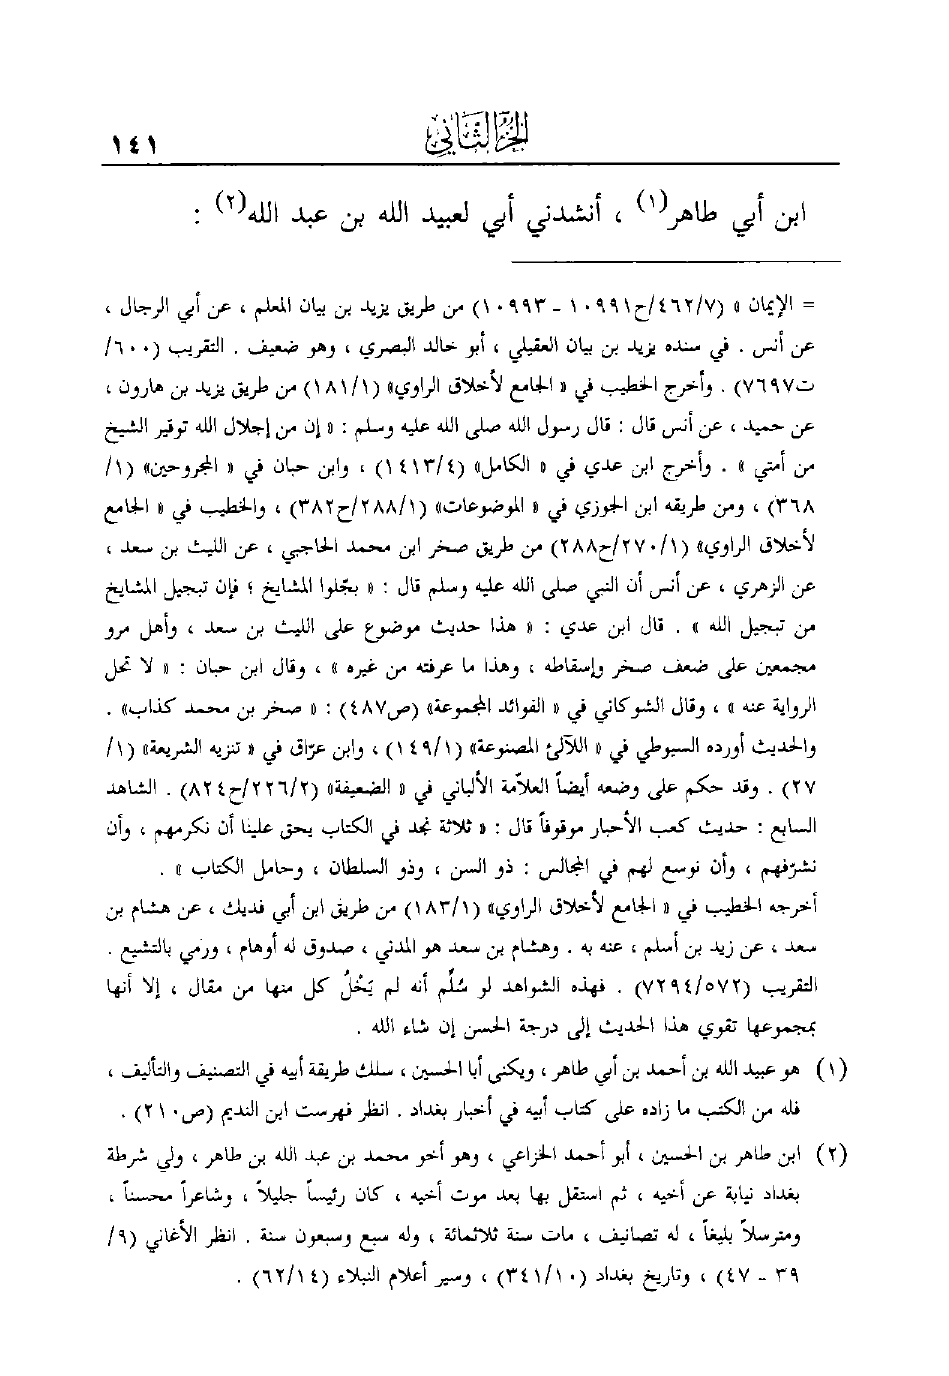 الجزء الثاني
١٤١
ابن أبي طاهر(١) ، أنشدني أبي لعبيد الله بن عبد الله(٢) :
= الإيمان » (٤٦٢/٧/ح١٠٩٩١ - ١٠٩٩٣) من طريق يزيد بن بيان المعلم ، عن أبي الرجال ،
عن أنس . في سنده يزيد بن بيان العقيلي ، أبو خالد البصري ، وهو ضعيف . التقريب (٦٠٠/
ت٧٦٩٧) . وأخرج الخطيب في « الجامع لأخلاق الراوي» (١٨١/١) من طريق يزيد بن هارون ،
عن حميد ، عن أنس قال : قال رسول الله صلى الله عليه وسلم : « إن من إجلال الله توقير الشيخ
من أمتي » . وأخرج ابن عدي في « الكامل» (١٤١٣/٤) ، وابن حبان في « المجروحين» (١/
٣٦٨) ، ومن طريقه ابن الجوزي في « الموضوعات» (٢٨٨/١/ح٣٨٢) ، والخطيب في « الجامع
لأخلاق الراوي» (٢٧٠/١/ح٢٨٨) من طريق صخر ابن محمد الحاجبي ، عن الليث بن سعد ،
عن الزهري ، عن أنس أن النبي صلى الله عليه وسلم قال : « بجّلوا المشايخ ؛ فإن تبجيل المشايخ
من تبجيل الله » . قال ابن عدي : « هذا حديث موضوع على الليث بن سعد ، وأهل مرو
مجمعين على ضعف صخر وإسقاطه ، وهذا ما عرفته من غيره » ، وقال ابن حبان : « لا تحل
الرواية عنه » ، وقال الشوكاني في « الفوائد المجموعة» (ص٤٨٧) : « صخر بن محمد كذاب» .
والحديث أورده السيوطي في « اللآلئ المصنوعة» (١٤٩/١) ، وابن عرّاق في « تنزيه الشريعة» (١/
٢٧) . وقد حكم على وضعه أيضاً العلامّة الألباني في « الضعيفة» (٢٢٦/٢/ح٨٢٤) . الشاهد
السابع : حديث كعب الأحبار موقوفاً قال : « ثلاثة نجد في الكتاب يحق علينا أن نكرمهم ، وأن
نشرّفهم ، وأن نوسع لهم في المجالس : ذو السن ، وذو السلطان ، وحامل الكتاب » .
أخرجه الخطيب في « الجامع لأخلاق الراوي» (١٨٣/١) من طريق ابن أبي فديك ، عن هشام بن
سعد ، عن زيد بن أسلم ، عنه به . وهشام بن سعد هو المدني ، صدوق له أوهام ، ورمي بالتشيع .
التقريب (٧٢٩٤/٥٧٢) . فهذه الشواهد لو سُلِّم أنه لم يَخْلُ كل منها من مقال ، إلا أنها
بمجموعها تقوي هذا الحديث إلى درجة الحسن إن شاء الله .
(١) هو عبيد الله بن أحمد بن أبي طاهر ، ويكنى أبا الحسين ، سلك طريقة أبيه في التصنيف والتأليف ،
فله من الكتب ما زاده على كتاب أبيه في أخبار بغداد . انظر فهرست ابن النديم (ص٢١٠) .
(٢) ابن طاهر بن الحسين ، أبو أحمد الخزاعي ، وهو أخو محمد بن عبد الله بن طاهر ، ولي شرطة
بغداد نيابة عن أخيه ، ثم استقل بها بعد موت أخيه ، كان رئيساً جليلاً ، وشاعراً محسناً ،
ومترسلاً بليغاً ، له تصانيف ، مات سنة ثلاثمائة ، وله سبع وسبعون سنة . انظر الأغاني (٩/
٣٩ - ٤٧) ، وتاريخ بغداد (٣٤١/١٠) ، وسير أعلام النبلاء (٦٢/١٤) .